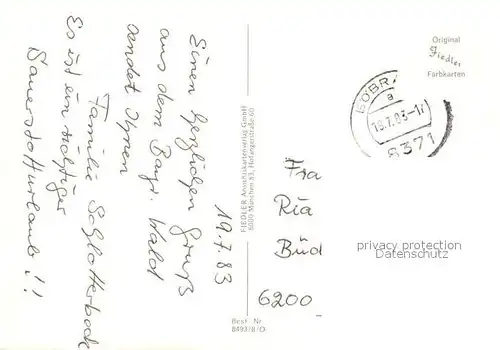 19.7.83
Einen herzlichen Gruß
aus dem Bayr. Wald
sendet Ihnen
Familie Schlotterbeck
Es ist ein richtiger
Sauerstoffurlaub !!
FIEDLER Ansichtskartenverlag GmbH
8000 München 83, Hofangerstraße 60
Best. Nr.
8493/B/O
Original
Fiedler
Farbkarten
8371
Fra
Ria
Büd
6200
privacy protection
Datenschutz